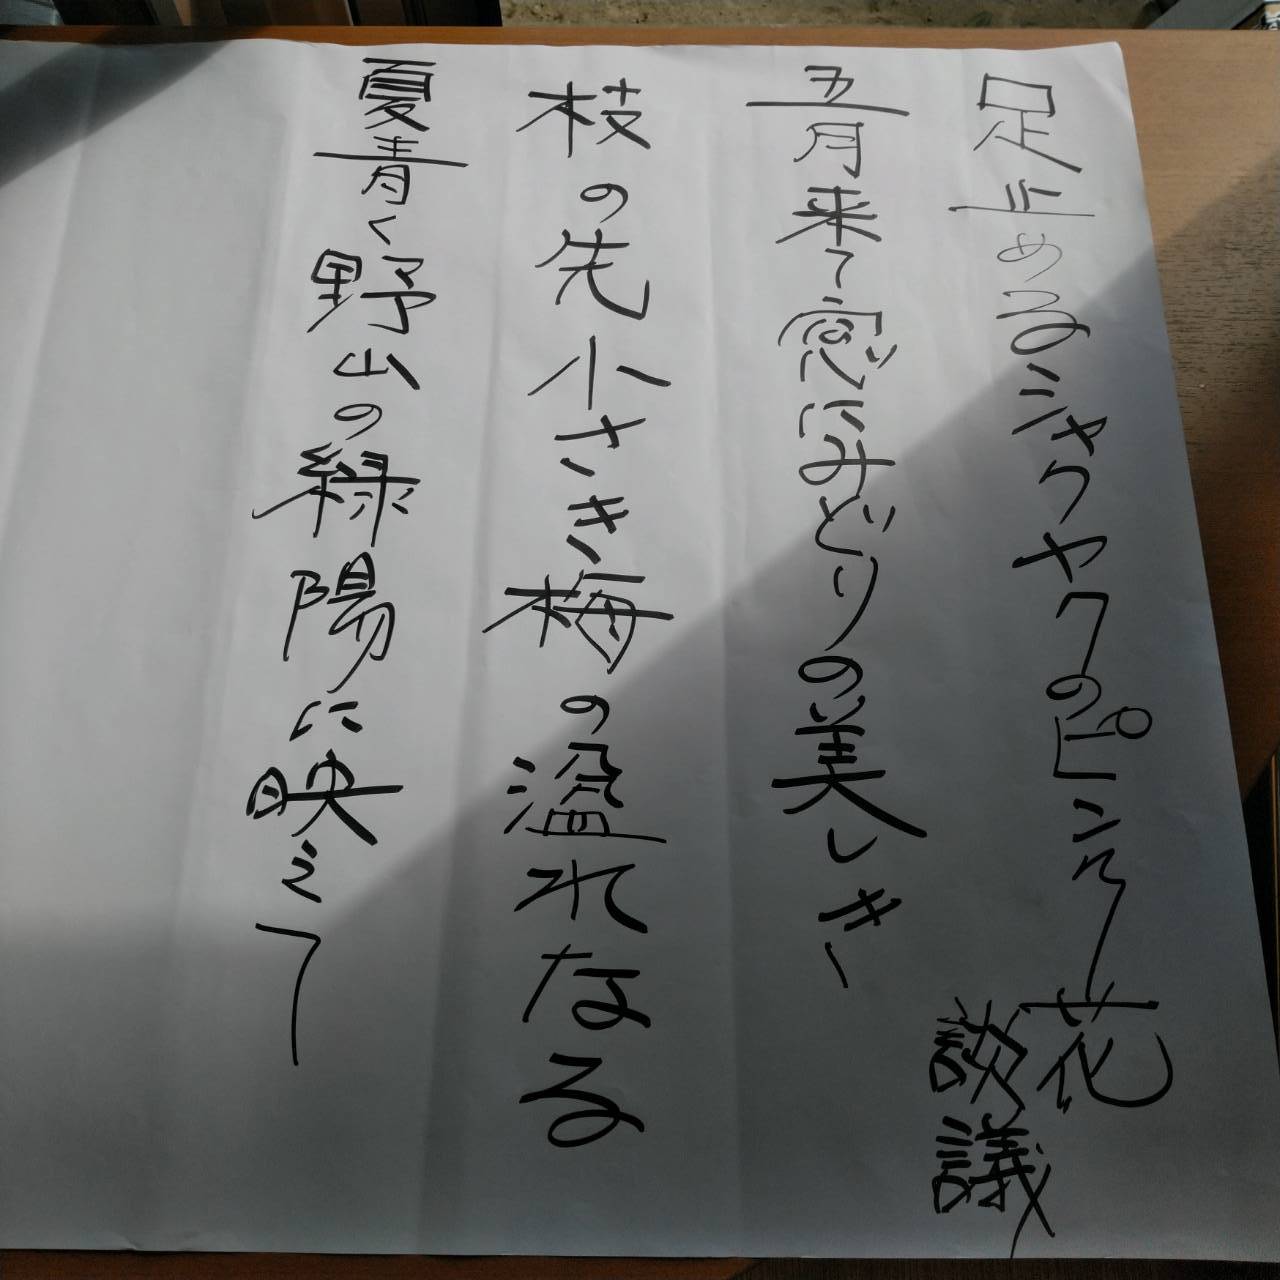 足止めるシャクヤクのピンク花談議
五月来て窓にみどりの美しき
枝の先小さき梅の溢れなる
夏青く野山の緑陽に映えて